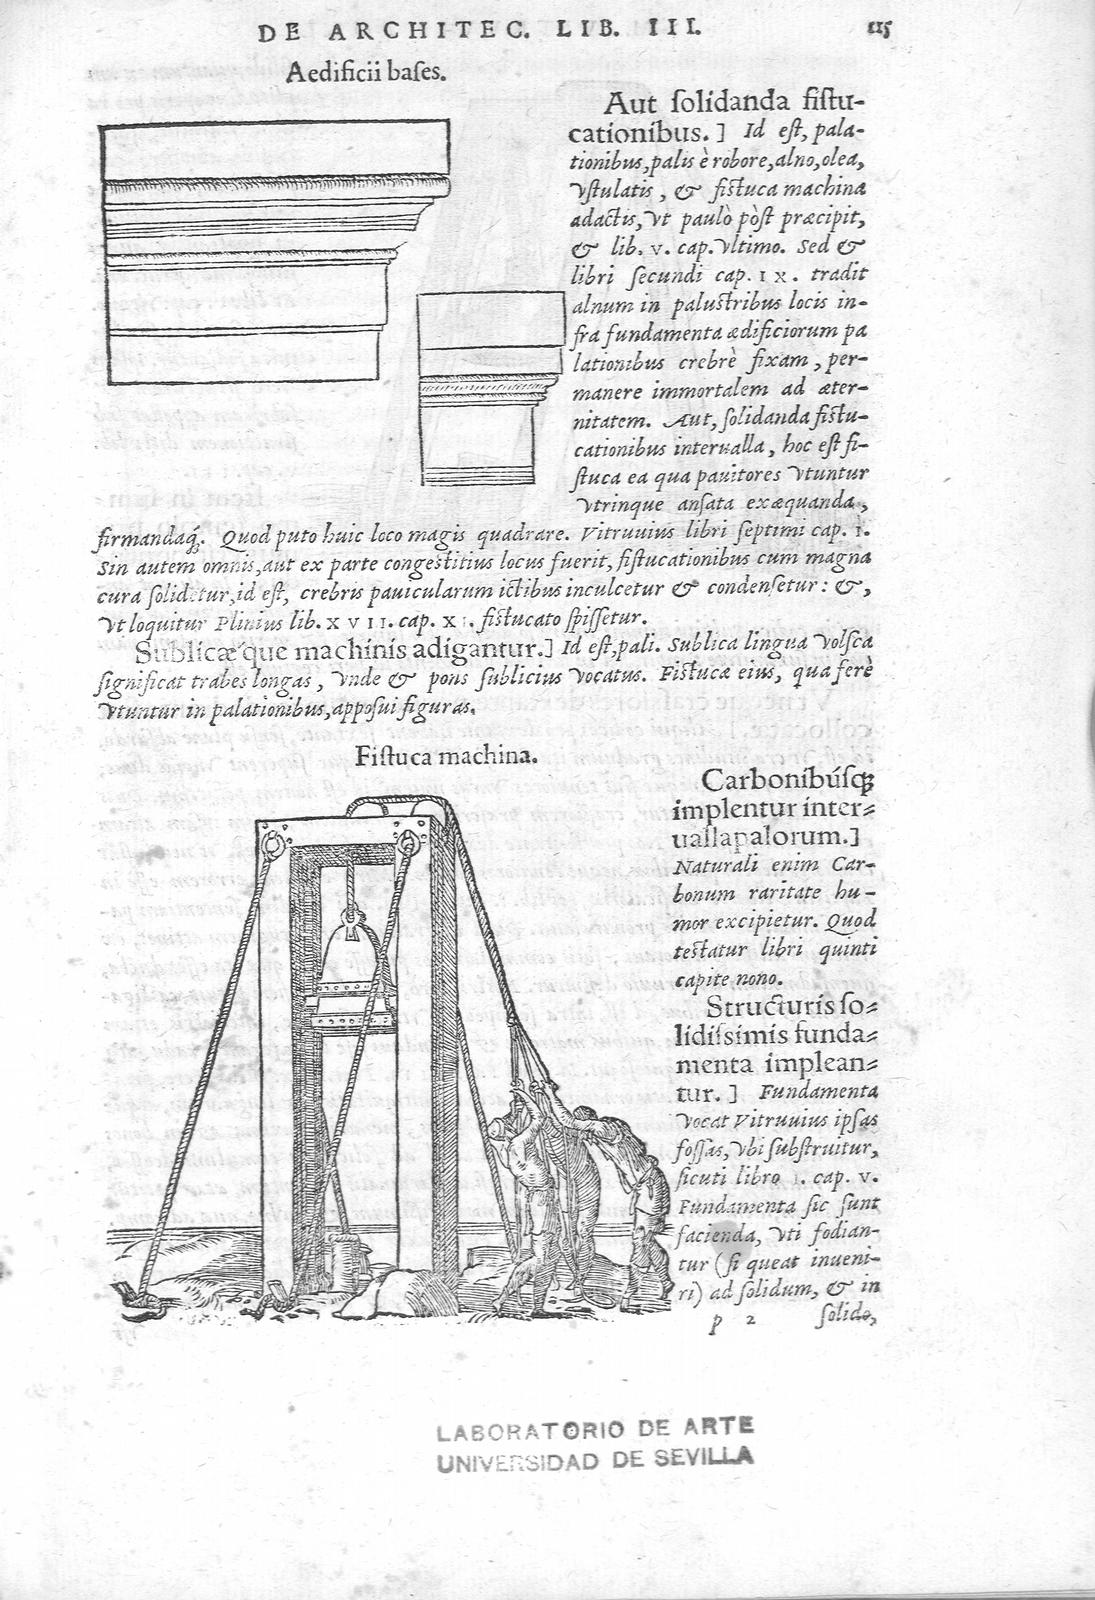 DE ARCHITEC. LIB. III. 115
Aedificii bases.
Aut solidanda fistu-
cationibus. ] Id est, pala-
tionibus, palis è robore, alno, olea,
vstulatis, & fistuca machina
adactis, vt paulò pòst præcipit,
& lib. v. cap. vltimo. Sed &
libri secundi cap. IX. tradit
alnum in palustribus locis in-
fra fundamenta ædificiorum pa
lationibus crebrè fixam, per-
manere immortalem ad æter-
nitatem. Aut, solidanda fistu-
cationibus interualla, hoc est fi-
stuca ea qua pauitores vtuntur
vtrinque ansata exæquanda,
firmandaq́;. Quod puto huic loco magis quadrare. Vitruuius libri septimi cap. I.
Sin autem omnis, aut ex parte congestitius locus fuerit, fistucationibus cum magna
cura solidetur, id est, crebris pauicularum ictibus inculcetur & condensetur: &,
vt loquitur Plinius lib. XVII. cap. XI. fistucato spissetur.
Sublicæque machinis adigantur. ] Id est, pali. Sublica lingua volsca
significat trabes longas, vnde & pons sublicius vocatus. Fistucæ eius, qua ferè
vtuntur in palationibus, apposui figuras.
Fistuca machina.
Carbonibúsq;
implentur inter-
uallapalorum. ]
Naturali enim Car-
bonum raritate hu-
mor excipietur. Quod
testatur libri quinti
capite nono.
Structuris so-
lidissimis funda-
menta implean-
tur. ] Fundamenta
vocat Vitruuius ipsas
fossas, vbi substruitur,
sicuti libro I. cap. v.
Fundamenta sic sunt
facienda, vti fodian-
tur (si queat inueni-
ri) ad solidum, & in
p 2 solido,
LABORATORIO DE ARTE
UNIVERSIDAD DE SEVILLA